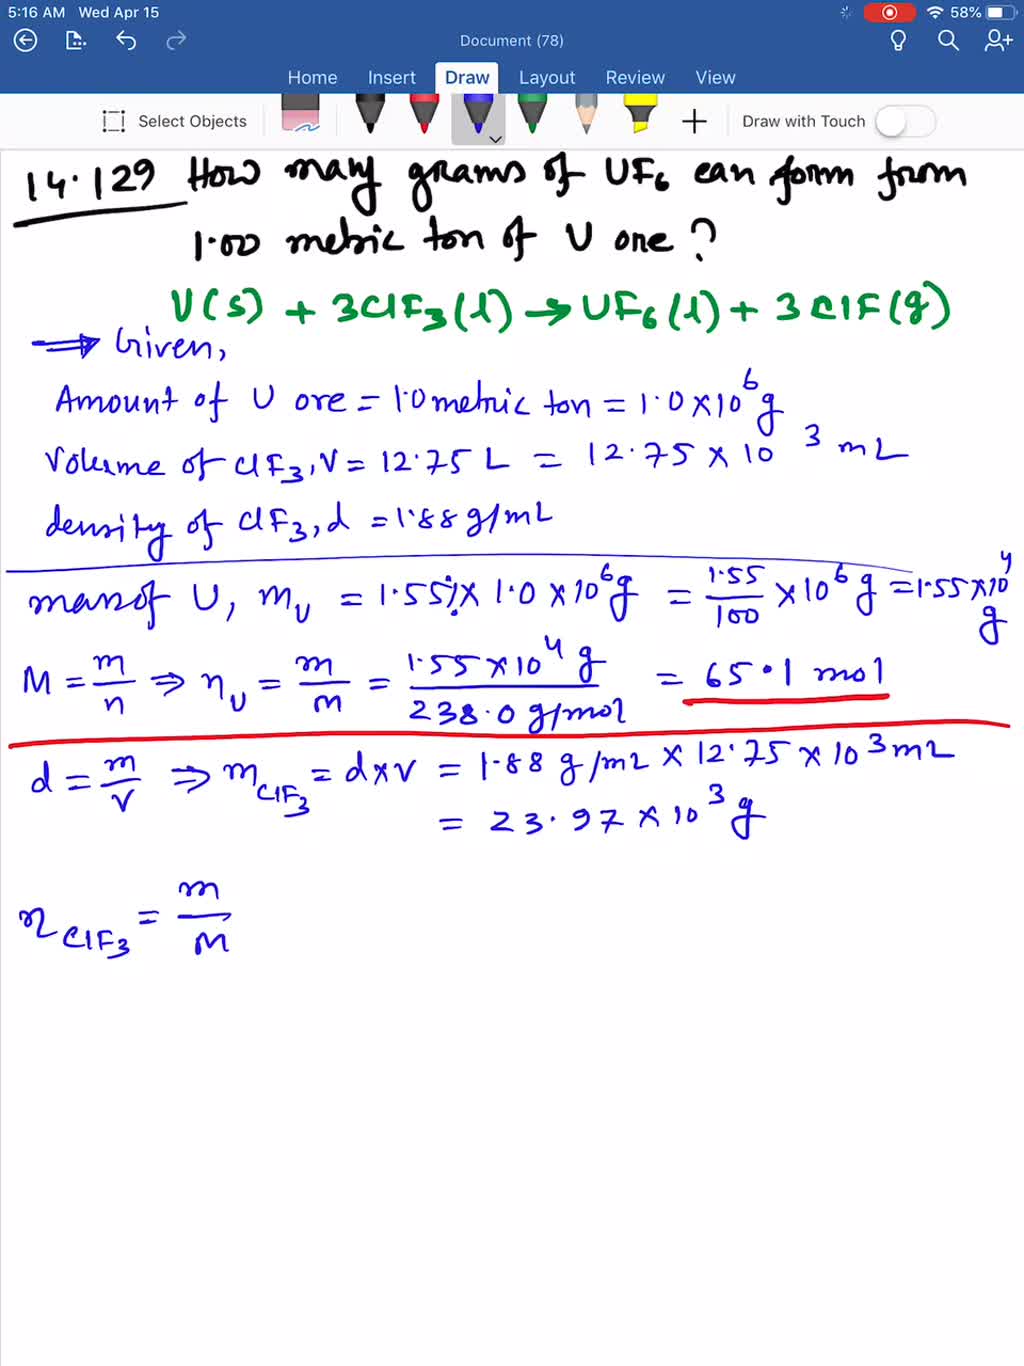 5:16 AM Wed Apr 15 58%
Document (78)
Home Insert Draw Layout Review View
Select Objects Draw with Touch
14.129 How many grams of UF6 can form from
1.00 metric ton of U ore?
U(s) + 3ClF3(l) → UF6(l) + 3ClF(g)
⇒ Given,
Amount of U ore = 1.0 metric ton = 1.0 × 10^6 g
Volume of ClF3, V = 12.75 L = 12.75 × 10^3 mL
density of ClF3, d = 1.88 g/mL
mass of U, mU = 1.55% × 1.0 × 10^6 g = 1.55/100 × 10^6 g = 1.55 × 10^4 g
M = m/n ⇒ nU = m/M = 1.55 × 10^4 g / 238.0 g/mol = 65.1 mol
d = m/V ⇒ mClF3 = d × V = 1.88 g/mL × 12.75 × 10^3 mL
= 23.97 × 10^3 g
nClF3 = m/M